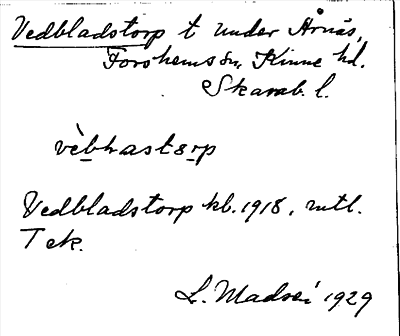 Vedbladstorp t. under Årnäs,
Forshems sn, Kinne hd.
Skarab. l.
vèbhastorp
Vedbladstorp kb. 1918, mtl.
T ek.
1929